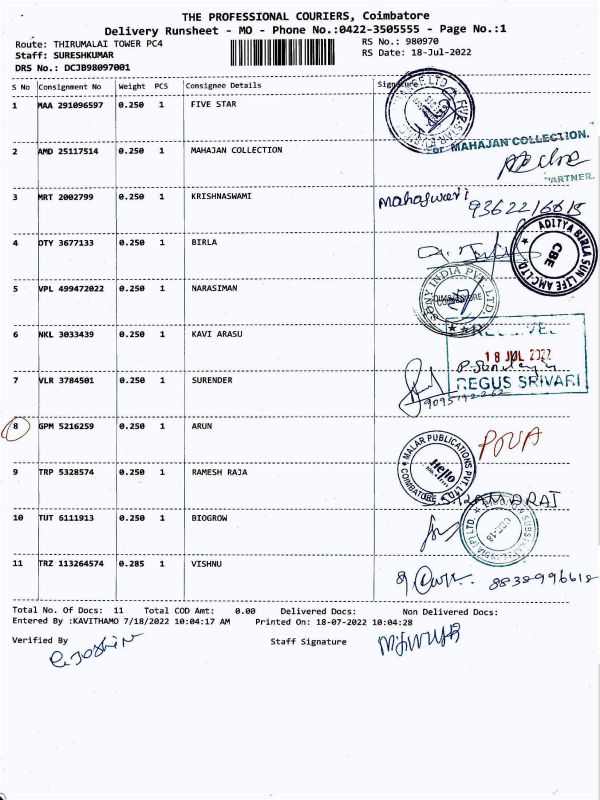 THE PROFESSIONAL COURIERS, Coimbatore
Delivery Runsheet - MO - Phone No.:0422-3505555 - Page No.:1
Route: THIRUMALAI TOWER PC4 RS No.: 980970
Staff: SURESHKUMAR RS Date: 18-Jul-2022
DRS No.: DCJB98097001
S No Consignment No Weight PCS Consignee Details Signature
1 MAA 291096597 0.250 1 FIVE STAR
2 AMD 25117514 0.250 1 MAHAJAN COLLECTION
For MAHAJAN COLLECTION.
PARTNER.
3 MRT 2002799 0.250 1 KRISHNASWAMI
Mahaswari
4 OTY 3677133 0.250 1 BIRLA
ADITYA BIRLA SUN LIFE AMC LTD.
CBE
5 VPL 499472022 0.250 1 NARASIMAN
SONY INDIA PVT. LTD.
COIMBATORE
6 NKL 3033439 0.250 1 KAVI ARASU
18 JUL 2022
REGUS SRIVARI
7 VLR 3784501 0.250 1 SURENDER
8 GPM 5216259 0.250 1 ARUN
MALAR PUBLICATIONS PVT. LTD.
COIMBATORE
Hello
9 TRP 5328574 0.250 1 RAMESH RAJA
10 TUT 6111913 0.250 1 BIOGROW
11 TRZ 113264574 0.285 1 VISHNU
8838996618
Total No. Of Docs: 11 Total COD Amt: 0.00 Delivered Docs: Non Delivered Docs:
Entered By :KAVITHAMO 7/18/2022 10:04:17 AM Printed On: 18-07-2022 10:04:28
Verified By Staff Signature